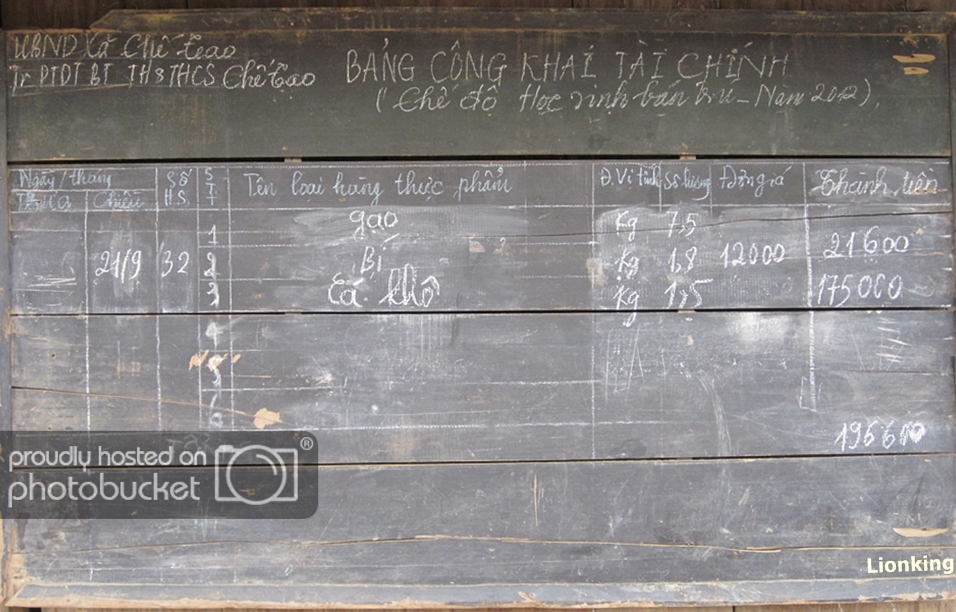 UBND Xã Chế Tạo
Tr PTDT BT TH & THCS Chế Tạo
BẢNG CÔNG KHAI TÀI CHÍNH
(Chế độ Học sinh bán trú - Năm 2012)
Ngày/tháng Số H.S STT Tên loại hàng thực phẩm Đ.Vị tính Số lượng Đơn giá Thành tiền
Chiều
1 gạo Kg 7,5
21/9 32 2 Bí Kg 1,8 12000 21600
3 Cá khô Kg 1,5 175000
4
5
6
196600
proudly hosted on
photobucket
Lionking